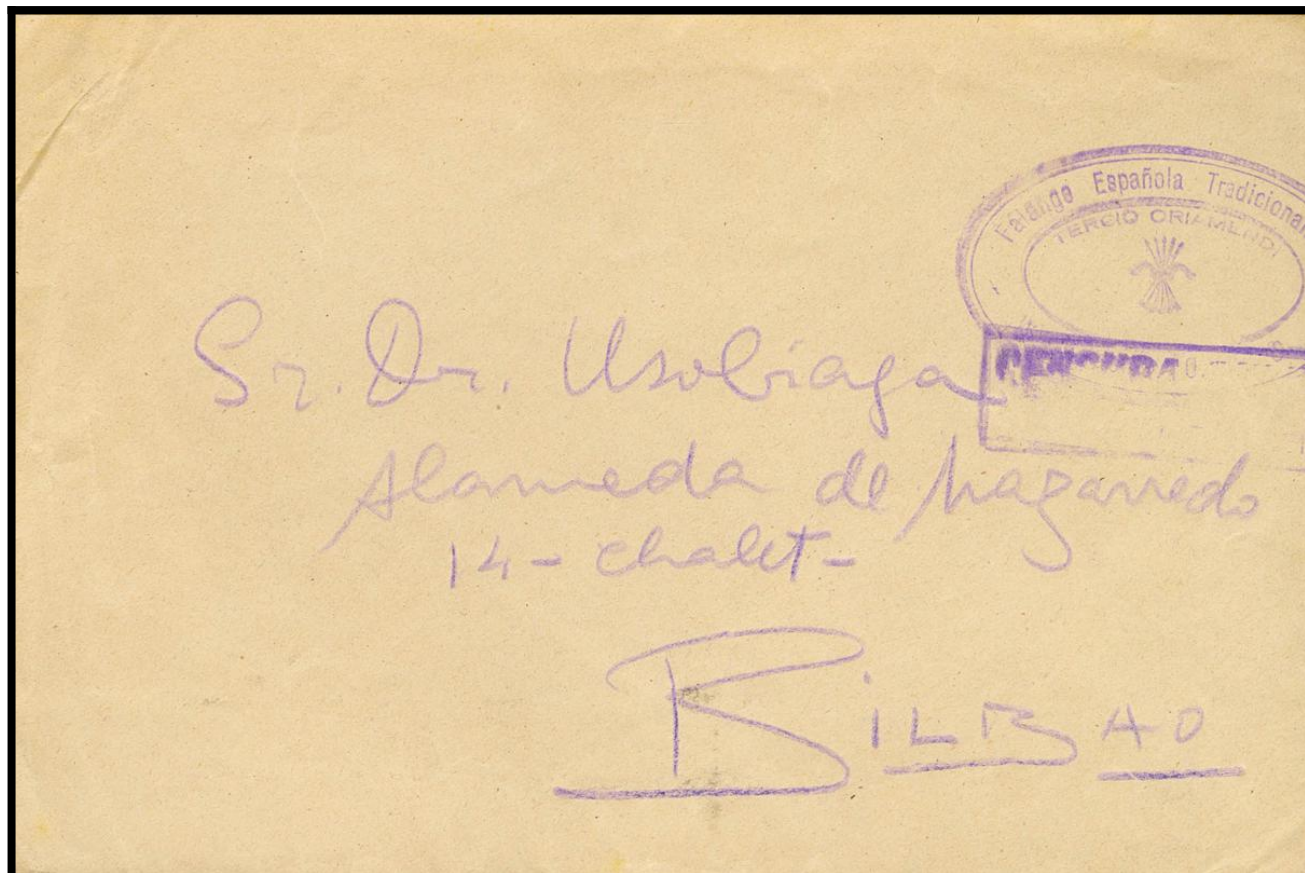 Falange Española Tradicional
TERCIO ORIAMENDI
CENSURA
Sr. Dr. Usobiaga
Alameda de Mazarredo
14 - chalet -
BILBAO